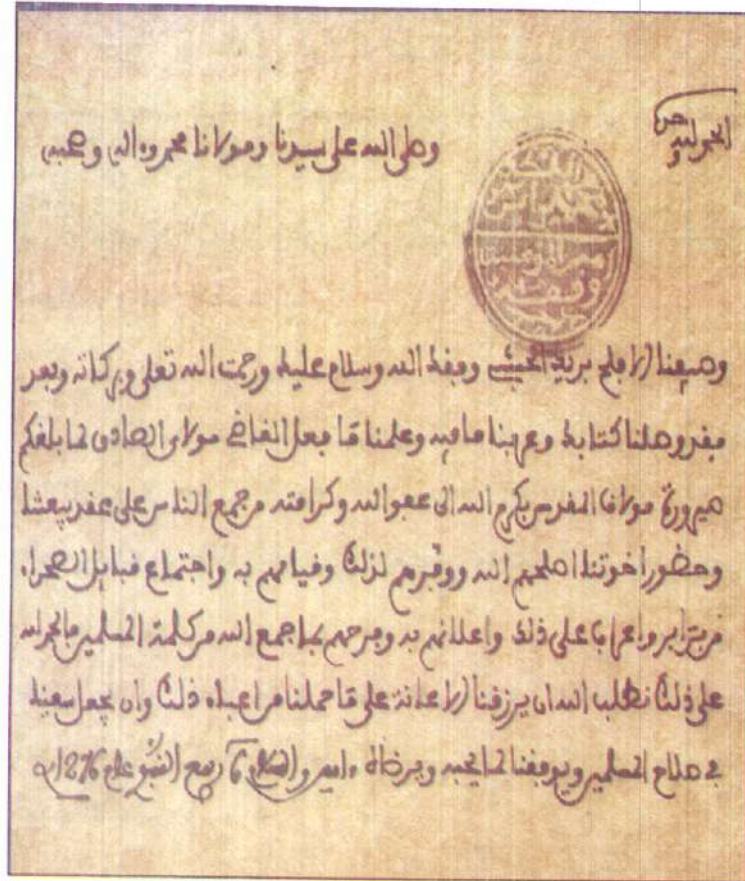 الحمد لله وحده
وصلى الله على سيدنا ومولانا محمد وءاله وصحبه
وصيفنا الافلح بريك الحبشي وفقك الله وسلام عليك ورحمت الله تعلى وبركاته وبعد
فقد وصلنا كتابك وعرفنا ما فيه وعلمنا ما فعل الفاضي مولاي الصادق لما بلغكم
صيرورة مولانا المقدس بكرم الله الى عفو الله وكرامته من جمع الناس على عقد بيعتنا
وحضور اخوتنا اصلحهم الله ووفدهم لذلك وقيامهم به واجتماع قبايل الصحراء
من برابر واعراب على ذلك واعلانهم به وفرحهم بما جمع الله من كلمة المسلمين فالحمد لله
على ذلك نطلب الله ان يرزقنا الاعانة على ما حملنا من اعباء ذلك وان يجعل سعينا
في صلاح المسلمين ويوفقنا لما يحبه ويرضاه ءامين والسلام ربيع النبوي عام 1276